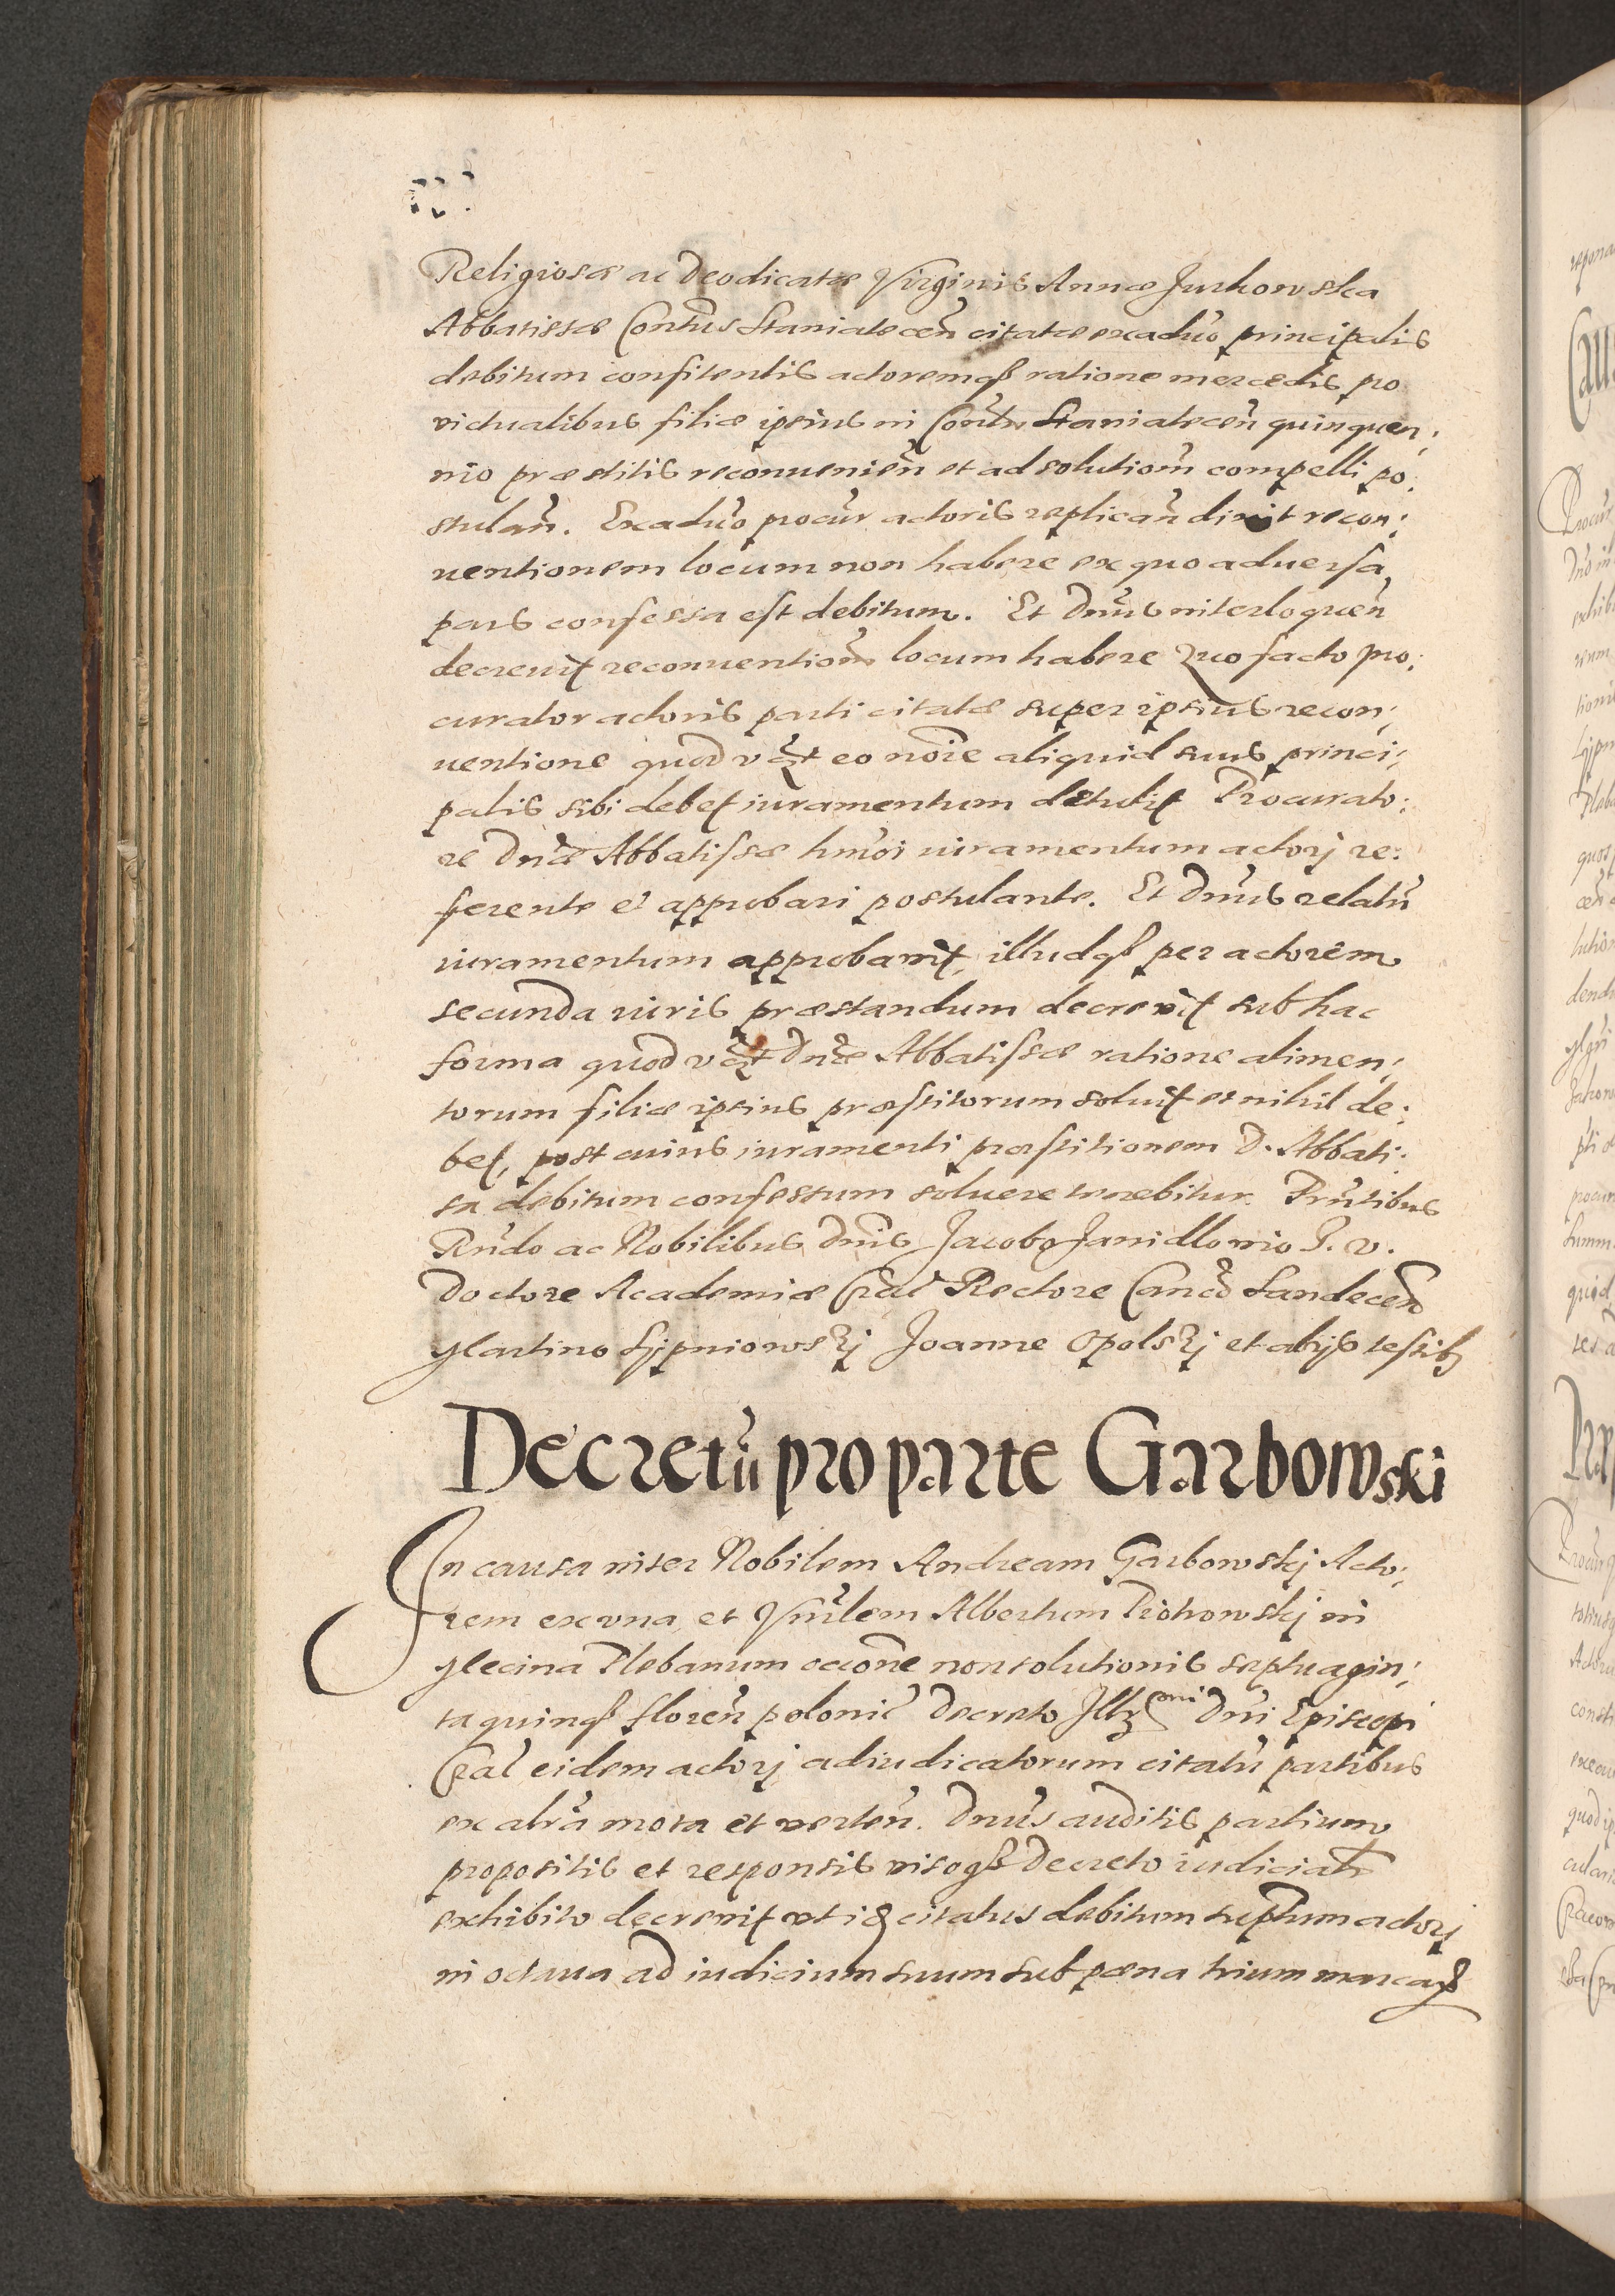 Religiosæ ac Deodicatæ Virginis Annæ Jurkowska
Abbatissæ Contus Staniatecen̄ citatæ ex aduo principalis
debitum confitentis actoremqȝ ratione mercedis pro
victualibus filiæ ipsius in Contu Staniatecen̄ quinquen:
nio præstitis reconuenien̄ et ad solutiom̄ compelli po:
stulan̄. Ex aduo procur actoris replican̄ dixit recon:
uentionem locum non habere ex quo aduersa
pars confessa est debitum. Et Dnus interloquen̄
decreuit reconuentiom̄ locum habere Quo facto pro:
curator actoris parti citatæ super ipsius recon:
uentione quod v eo noīe aliquid suus princi:
palis sibi debet iuramentum detulit Procurato:
re Dnæ Abbatissæ hmōi iuramentum actorj re:
ferente et approbari postulante. Et Dnus relatū
iuramentum approbauit, illudqȝ per actorem
secunda iuris præstandum decreuit sub hac
forma quod v Dnæ Abbatissæ ratione alimen:
torum filiæ ipsius præstitorum soluit et nihil de:
bet, post cuius iuramenti præstitionem D. Abbati:
sa debitum confessum soluere tenebitur. Pn̄tibus
Rndo ac Nobilibus Dnis Jacobo Janidlouio J. V.
Doctore Academiæ Cracͥ Rectore Canco Sandecen̄
Martino Lipniowskj Joanne Opolskj et alijs testibȝ
Decretū pro parte Garbowski
In causa inter Nobilem Andream Garbowskj Acto:
rem ex vna et Vnrlem Albertum Piotrowskj in
Mecina Plebanum occōne non solutionis septuagin:
ta quinqȝ floren̄ polonic̄ Decreto Illrmi Dni Episcopi
Crac̄ eidem actorj adiudicatorum citatū partibus
ex altra mota et verten̄. Dnus auditis partium
propositis et responsis visoqȝ Decreto iudicialr
exhibito decreuit vt idē citatus debitum suprtum actorj
in octaua ad iudicium suum sub pæna trium marcarȝ